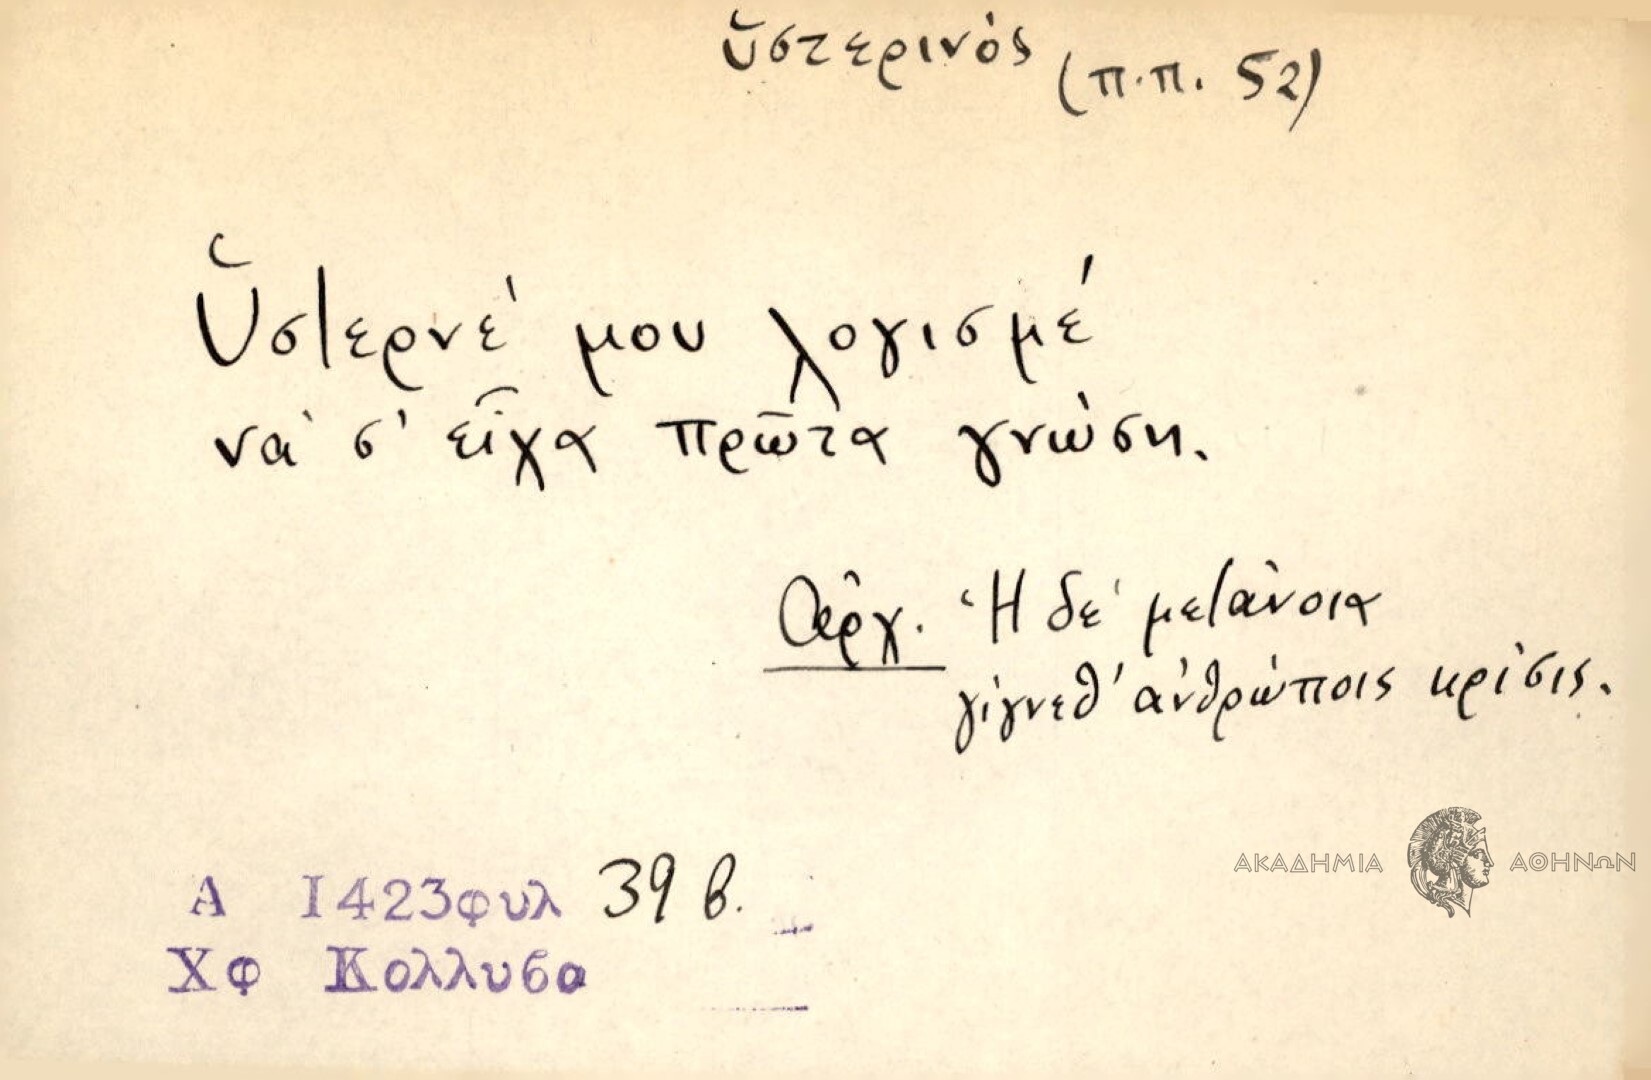 ὑστερινός (π.π. 52)
Ὑστερνέ μου λογισμέ
νὰ σ' εἶχα πρῶτα γνώση.
Ἀρχ. Ἡ δέ μετάνοια
γίγνεθ' ἀνθρώποις κρίσις.
Α 1423φυλ 39 β.
Χφ Κολλυβα
ΑΚΑΔΗΜΙΑ ΑΘΗΝΩΝ